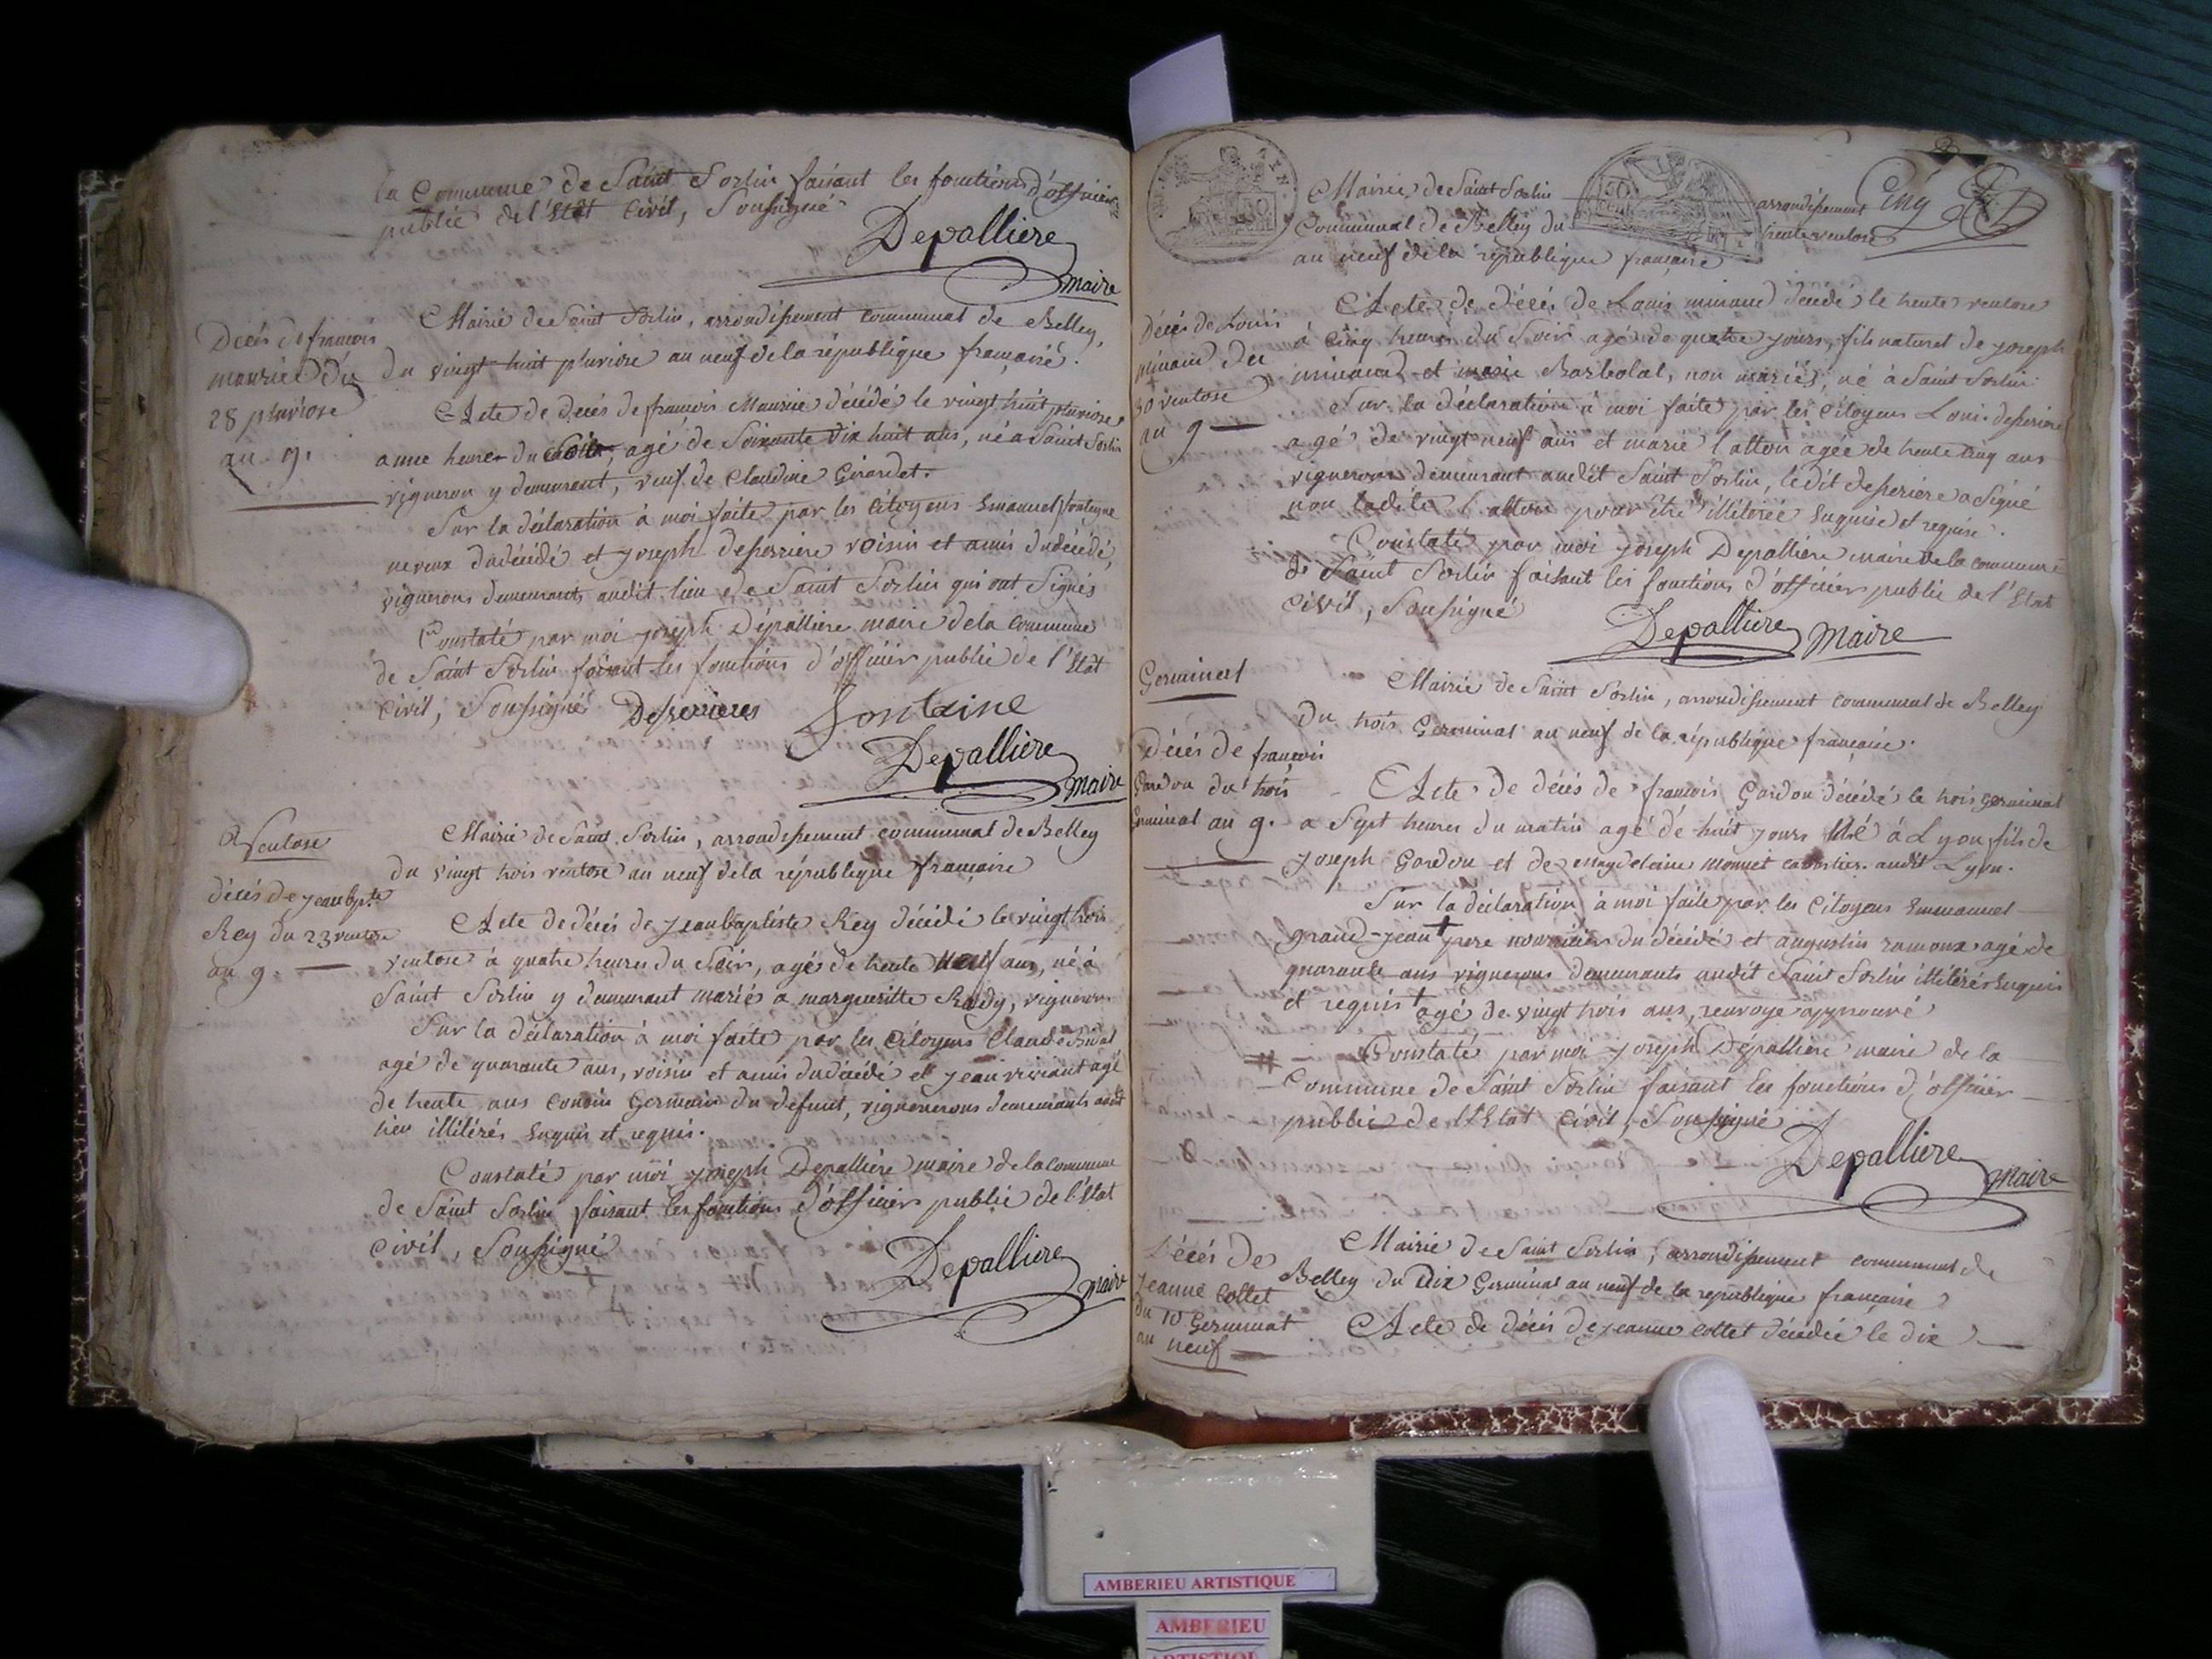 la Commune de Saint Sorlin faisant les fonctions d'officier
public de l'Etat Civil, Soussigné
Depalliere
maire
Décés de françois
maurice du
28 pluviose
an 9.
Mairie de Saint Sorlin, arrondissement communal de Belley,
du vingt huit pluviose an neuf de la république française.
Acte de decés de françois Maurice décédé le vingt huit pluviose
a une heure du, agé de Soixante dix huit ans, né a Saint Sorlin
vigneron y demeurant, veuf de Claudine Girardet.
Sur la déclaration à moi faite par les Citoyens Emanuel fontayne
neveux du décédé et joseph desserriere voisin et amis du décédé,
vignerons demeurants audit lieu de Saint Sorlin qui ont Signés
Constaté par moi joseph Depalliere maire de la commune
de Saint Sorlin faisant les fonctions d'officier public de l'Etat
Civil, Soussigné Desserieres Fontaine
Depalliere
maire
Ventose
décés de jean bpte
Rey du 23 ventose
an 9.
Mairie de Saint Sorlin, arrondissement communal de Belley
du vingt trois ventose an neuf de la république française
Acte de décés de jean baptiste Rey décédé le vingt trois
ventose à quatre heures du Soir, agé de trente neuf ans, né à
Saint Sorlin y demeurant mariés a margueritte Rudy, vigneron
Sur la déclaration à moi faite par les Citoyens Claude
agé de quarante ans, voisin et amis du décédé et jean viviant agé
de trente ans cousin Germain du defunt, vignenerons demeurants audit
lieu illitérés Enquis et requis.
Constaté par moi joseph Depalliere maire de la commune
de Saint Sorlin faisant les fonctions d'officier public de l'Etat
Civil, Soussigné
Depalliere
maire
Mairie de Saint Sorlin arrondissement Cinq
Communal de Belley du trente ventose
an neuf de la république française
Décés de Louis
minaud du
30 ventose
an 9
Acte de décés de Louis minaud décédé le trente ventose
à Cinq heures du Soir agé de quatre jours, fils naturel de joseph
minaud et marie Barbolat, non mariés, né à Saint Sorlin
Sur la déclaration à moi faite par les Citoyens Louis desseriere
agé de vingt neuf ans et marie l'atton agée de trente cinq ans
vignerons demeurant audit Saint Sorlin, ledit desseriere a Signé
non ladite l'atton pour être illitérée Enquise et requise.
Constaté par moi joseph Depalliere maire de la commune
de Saint Sorlin faisant les fonctions d'officier public de l'Etat
Civil, Soussigné
Depalliere maire
Germinal
Mairie de Saint Sorlin, arrondissement communal de Belley
du trois Germinal an neuf de la république française.
Décés de françois
Gardon du trois
Germinal an 9.
Acte de décés de françois Gardon décédé le trois germinal
a Sept heures du matin agé de huit jours né à Lyon, fils de
joseph Gardon et de magdelaine monnet audit Lyon.
Sur la déclaration à moi faite par les Citoyens Emmanuel
grand-jean + pere nourricier du décédé et augustin ramoux agé de
quarante ans vignerons demeurants audit Saint Sorlin illitérés Enquis
et requis + agé de vingt trois ans, renvoye approuvé
Constaté par moi joseph Depalliere maire de la
Commune de Saint Sorlin faisant les fonctions d'officier
public de l'Etat Civil, Soussigné
Depalliere
maire
Décés de
jeanne Collet
du 10 Germinal
an neuf
Mairie de Saint Sorlin, arrondissement communal de
Belley du Dix Germinal an neuf de la republique française
Acte de décés de jeanne Collet décédée le dix
AMBERIEU ARTISTIQUE
AMBERIEU
ARTISTIQUE